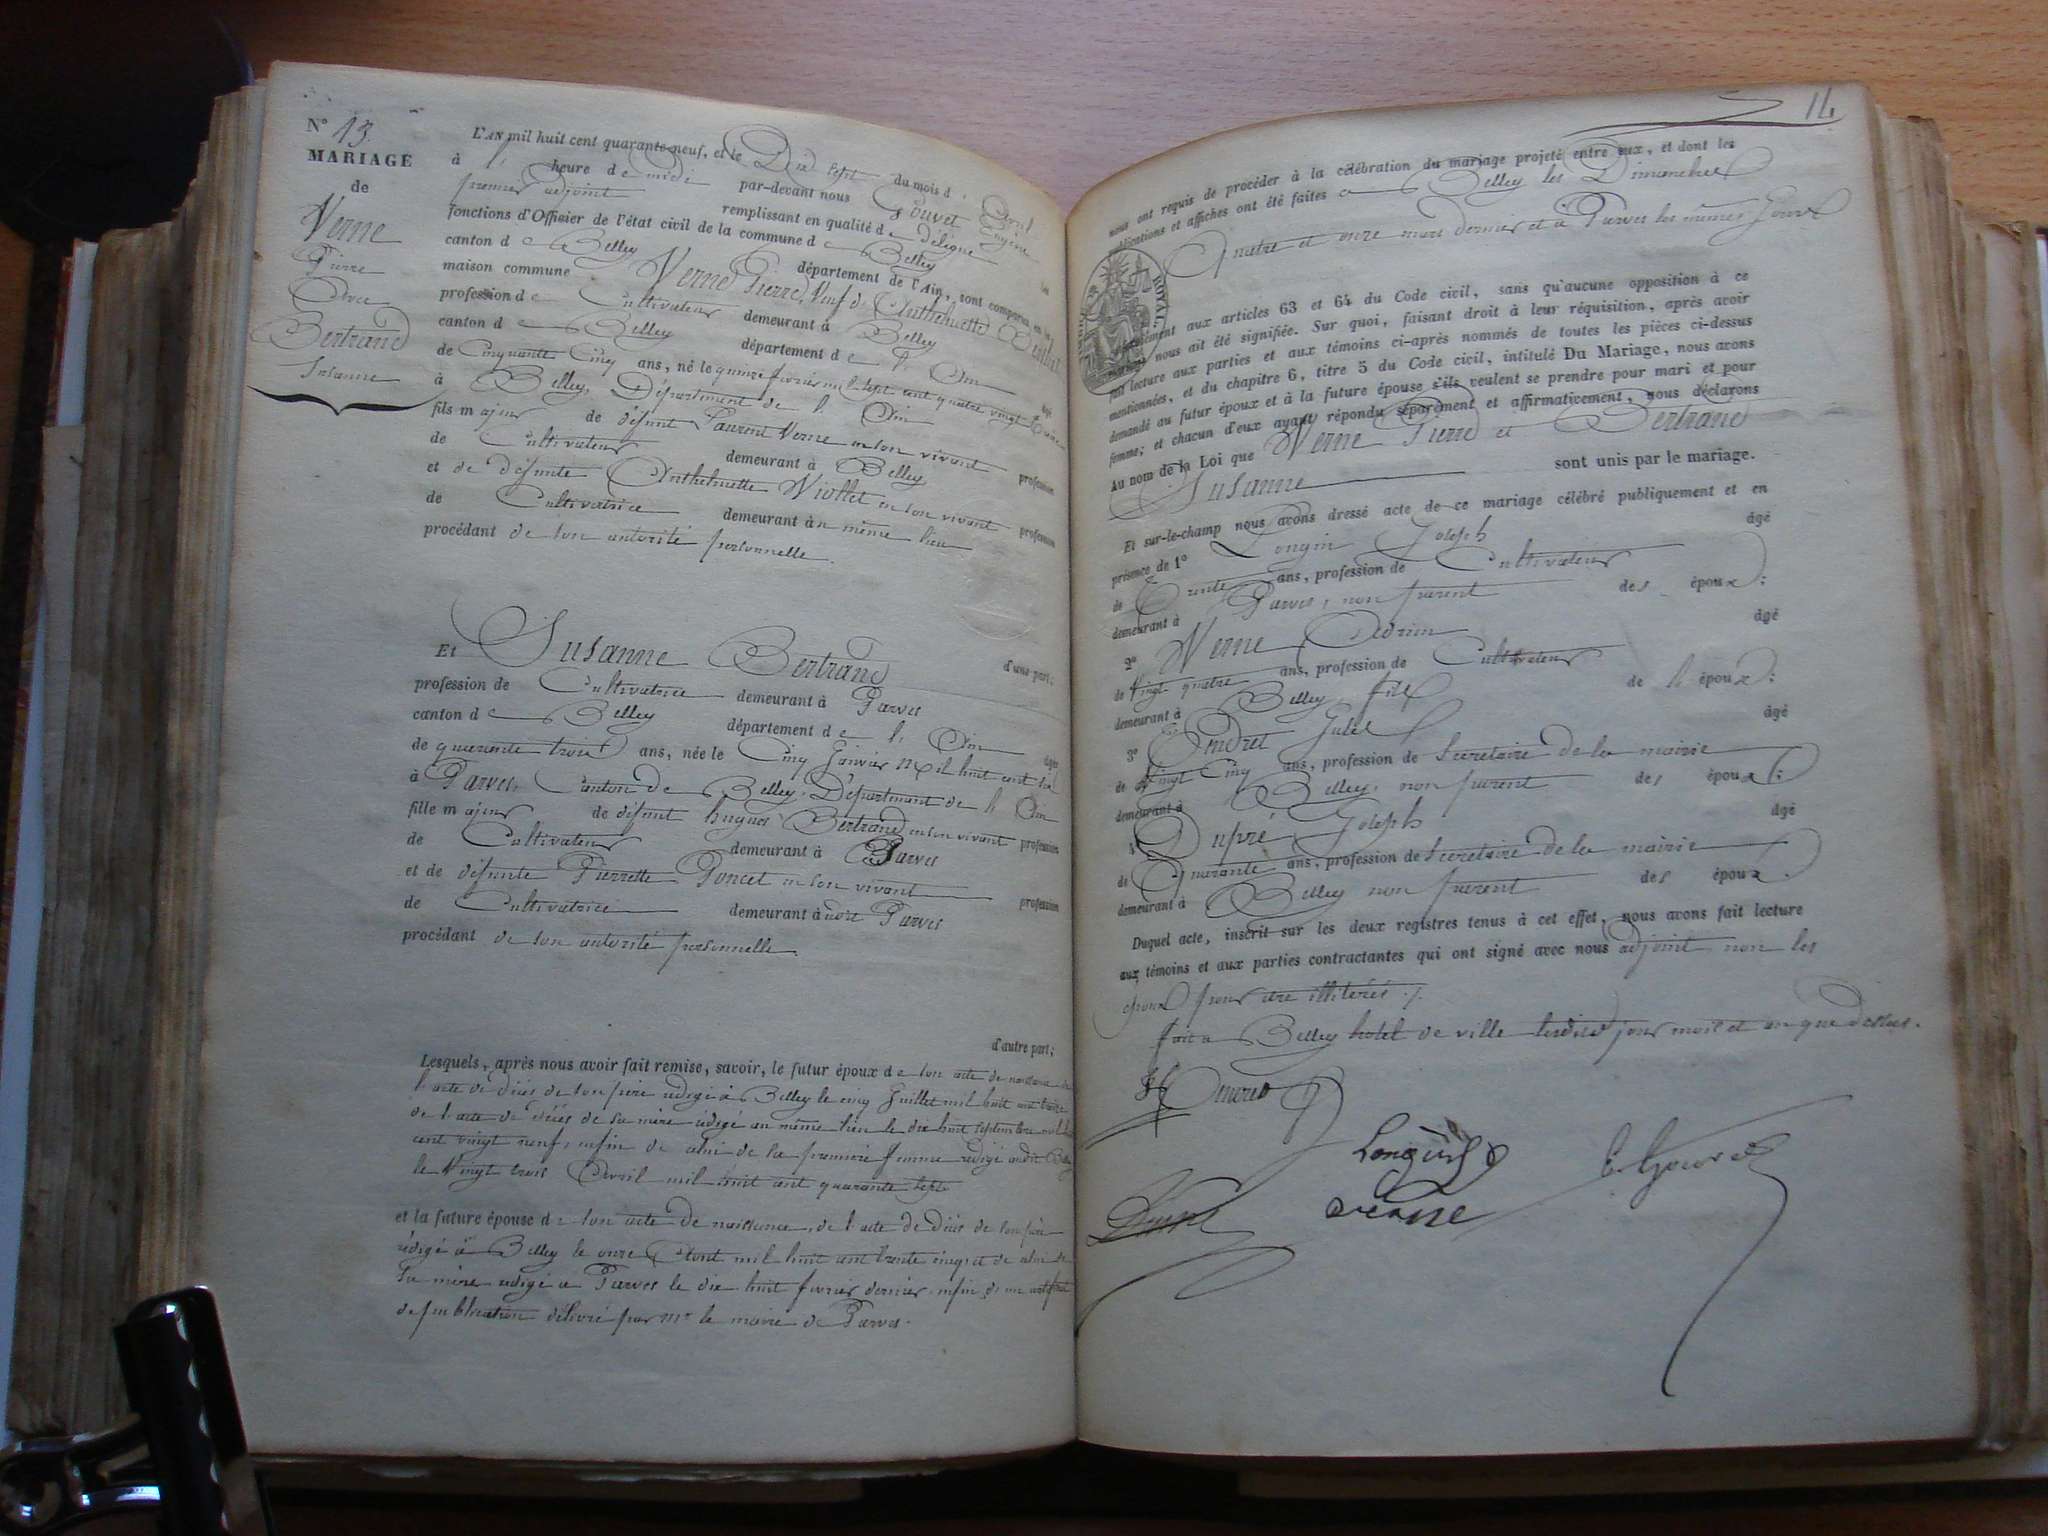 N° 13.
MARIAGE
de
Verne
Pierre
Avec
Bertrand
Susanne
L'AN mil huit cent quarante-neuf, et le Dix sept du mois d'Avril
à 1' heure de midi par-devant nous Gouvet Eugène
premier adjoint remplissant en qualité de délégué les
fonctions d'Officier de l'état civil de la commune de Belley
canton de Belley département de l'Ain, sont comparus en la
maison commune Verne Pierre, Veuf de Anthelmette
profession de Cultivateur demeurant à Belley
canton de Belley département de l'Ain âgé
de Cinquante Cinq ans, né le quinze février mil sept cent quatre vingt
à Belley, Département de l'Ain
fils majeur de défunt Laurent Verne en son vivant profession
de Cultivateur demeurant à Belley
et de défunte Anthelmette Viollet en son vivant profession
de Cultivatrice demeurant à même lieu
procédant de son autorité personnelle.
d'une part;
Et Susanne Bertrand
profession de Cultivatrice demeurant à Parves
canton de Belley département de l'Ain âgée
de quarante trois ans, née le Cinq Janvier Mil huit cent six
à Parves, Canton de Belley, Département de l'Ain
fille majeur de défunt hugues Bertrand en son vivant profession
de Cultivateur demeurant à Parves
et de défunte Pierrette Poncet en son vivant profession
de Cultivatrice demeurant à Parves
procédant de son autorité personnelle
d'autre part;
Lesquels, après nous avoir fait remise, savoir, le futur époux de son acte de naissance de
l'acte de décès de son père rédigé à Belley le cinq Juillet mil huit cent treize
de l'acte de décès de sa mère rédigé au même lieu le dix huit septembre mil huit
cent vingt neuf, enfin de celui de sa première femme rédigé audit Belley
le Vingt trois Avril mil huit cent quarante sept
et la future épouse de son acte de naissance, de l'acte de décès de son père
rédigé à Belley le onze Aout mil huit cent trente cinq, et de celui de
sa mère rédigé à Parves le dix huit fevrier dernier, enfin d'un certificat
de publication délivré par Mr le maire de Parves.
14
nous ont requis de procéder à la célébration du mariage projeté entre eux, et dont les
publications et affiches ont été faites à Belley les Dimanches
Quatre et onze mars dernier et à Parves les mêmes Jours
ROYAL
conformément aux articles 63 et 64 du Code civil, sans qu'aucune opposition à ce
mariage nous ait été signifiée. Sur quoi, faisant droit à leur réquisition, après avoir
fait lecture aux parties et aux témoins ci-après nommés de toutes les pièces ci-dessus
mentionnées, et du chapitre 6, titre 5 du Code civil, intitulé Du Mariage, nous avons
demandé au futur époux et à la future épouse s'ils veulent se prendre pour mari et pour
femme; et chacun d'eux ayant répondu séparément et affirmativement, nous déclarons
Au nom de la Loi que Verne Pierre et Bertrand
Susanne sont unis par le mariage.
Et sur-le-champ nous avons dressé acte de ce mariage célébré publiquement et en
présence de 1° Longin Joseph âgé
de Trente ans, profession de Cultivateur
demeurant à Parves, non parent des époux;
2° Verne âgé
de Vingt quatre ans, profession de Cultivateur
demeurant à Belley fils de l'époux;
3° Andret Jules âgé
de Vingt Cinq ans, profession de Secretaire de la mairie
demeurant à Belley, non parent des époux;
4° Dupré Joseph âgé
de Quarante ans, profession de Secretaire de la mairie
demeurant à Belley non parent des époux.
Duquel acte, inscrit sur les deux registres tenus à cet effet, nous avons fait lecture
aux témoins et aux parties contractantes qui ont signé avec nous adjoint, non les
époux pour être illitérés ./.
fait à Belley hotel de ville lesdits jour mois et an que dessus.
Longin J
verne
E Gouvet